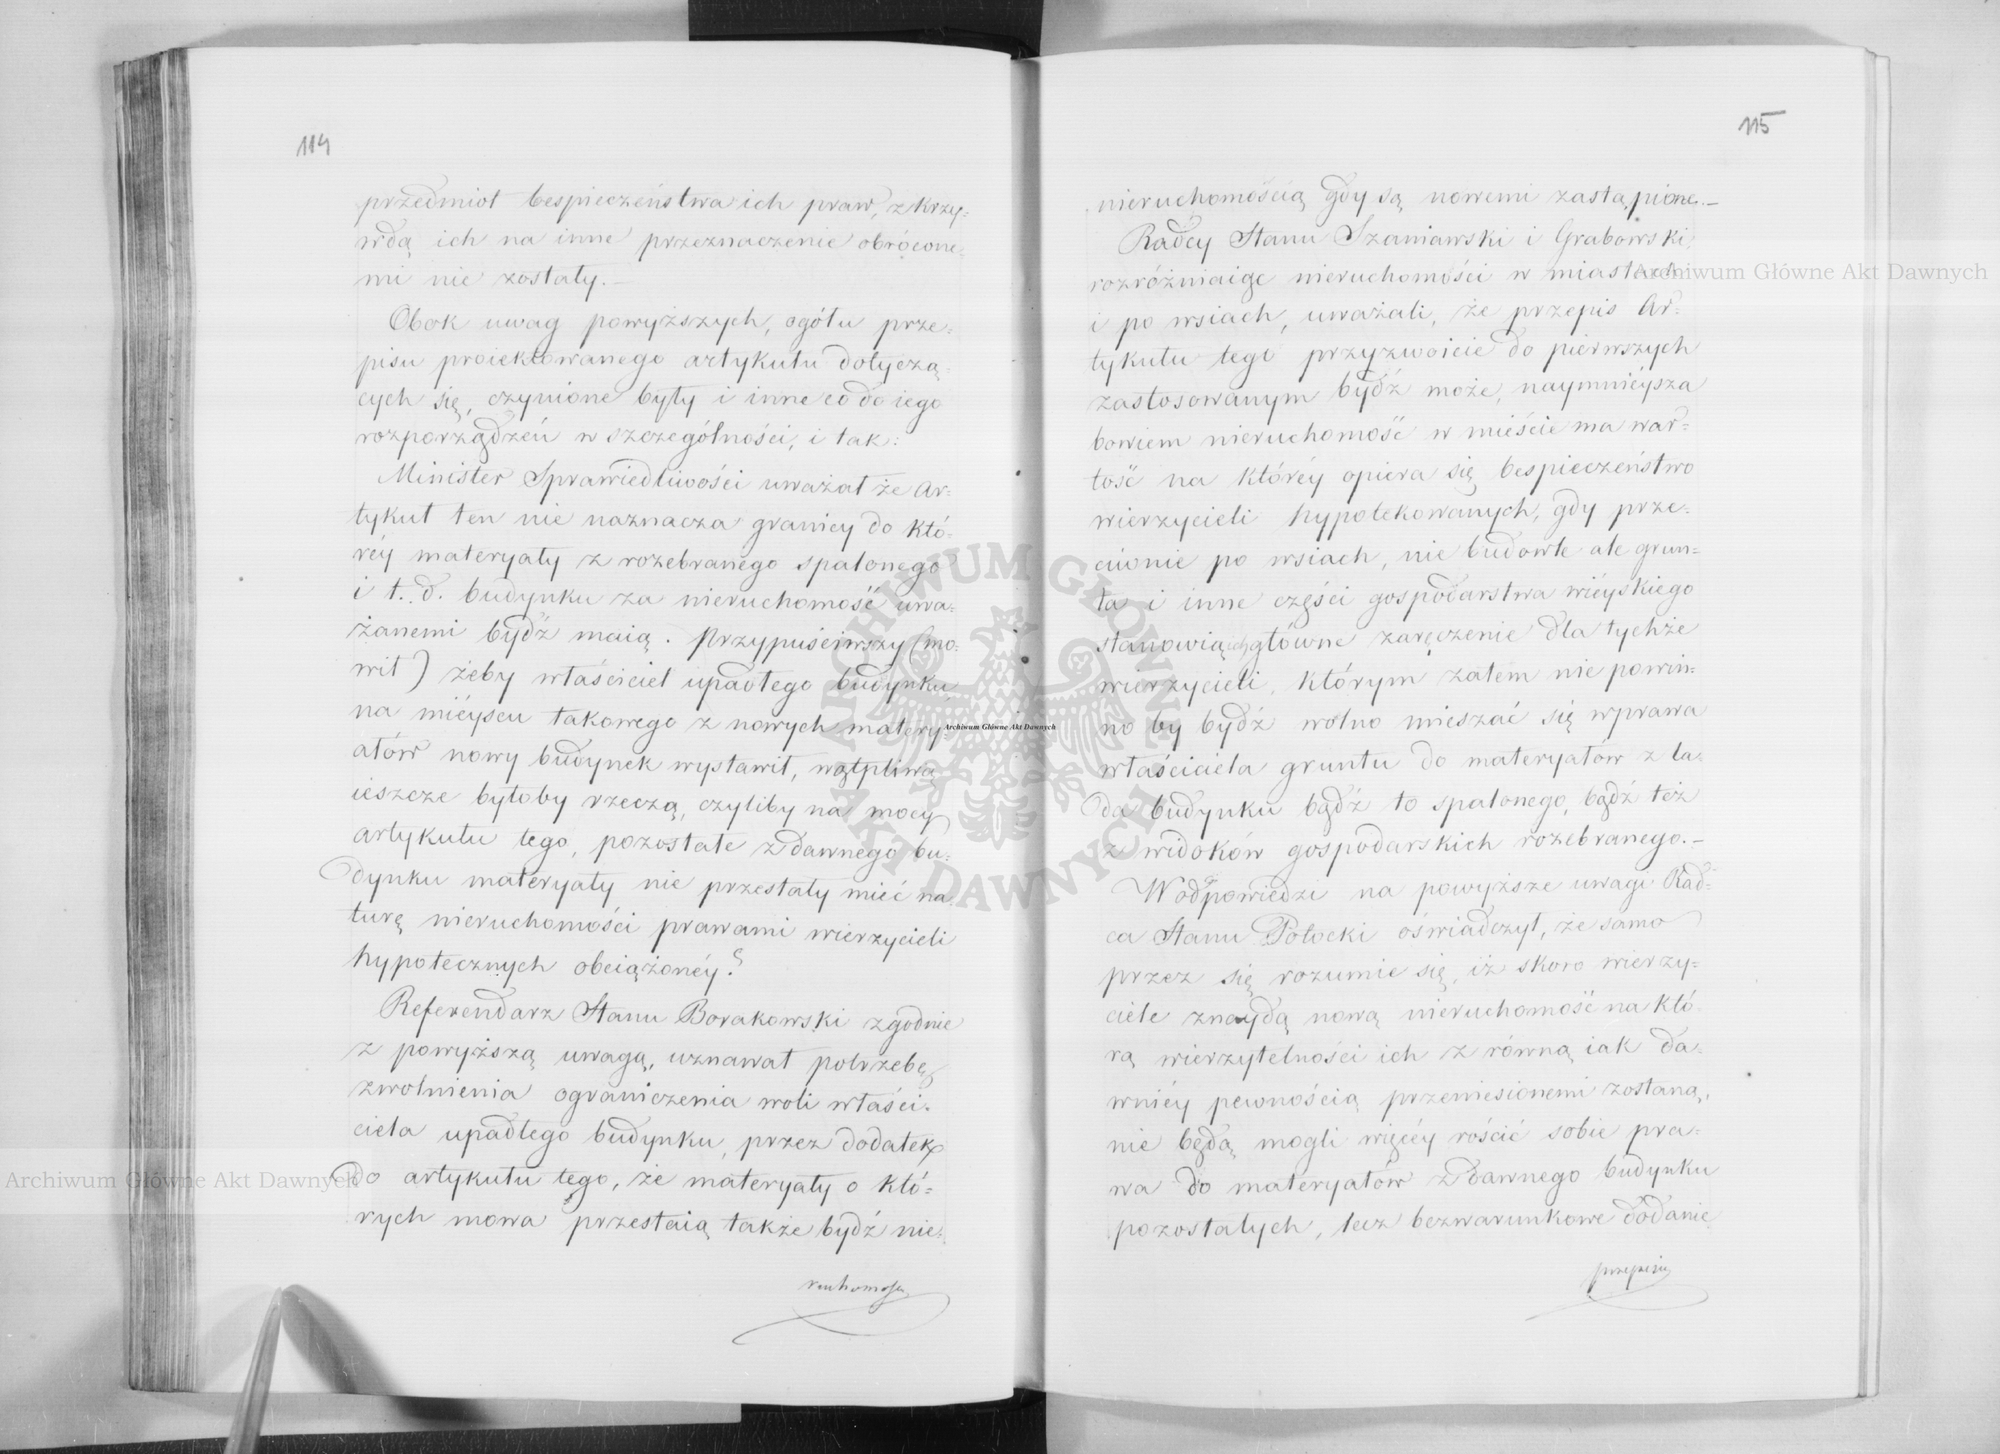 114
przedmiot bespieczeństwa ich praw, z krzy-
wdą ich na inne przeznaczenie obrócone-
mi nie zostały.-
Obok uwag powyższych, ogółu prze-
pisu proiektowanego artykułu dotyczą-
cych się, czynione były i inne co do iego
rozporządzeń w szczególności, i tak:
Minister Sprawiedliwości uważał że Ar-
tykuł ten nie naznacza granicy do któ-
réy materyały z rozebranego spalonego
i t. d. budynku za nieruchomość uwa-
żanemi bydź maią. Przypuściwszy (mó-
wił) żeby właściciel upadłego budynku
na mieyscu takowego z nowych matery-
ałów nowy budynek wystawił, wątpliwą
ieszcze byłoby rzeczą, czyliby na mocy
artykułu tego, pozostałe z dawnego bu-
dynku materyały nie przestały mieć na-
turę nieruchomości prawami wierzycieli
hypotecznych obciążonéy?
Referendarz Stanu Borakowski zgodnie
z powyższą uwagą, uznawał potrzebę
zwolnienia ograniczenia woli właści-
ciela upadłego budynku, przez dodatek
do artykułu tego, że materyały o któ-
rych mowa przestaią także bydź nie-
ruchomością
115
nieruchomością gdy są nowemi zastąpione.-
Radcy Stanu Szaniawski i Grabowski,
rozróżniaiąc nieruchomości w miastach
i po wsiach, uważali, że przepis Ar-
tykułu tego przyzwoicie do pierwszych
zastosowanym bydź może, naymniéysza
bowiem nieruchomość w mieście ma war-
tość na któréy opiera się bespieczeństwo
wierzycieli hypotekowanych, gdy prze-
ciwnie po wsiach, nie budowle ale grun-
ta i inne części gospodarstwa wieyskiego
stanowią ich główne zaręczenie dla tychże
wierzycieli, którym zatem nie powin-
no by bydź wolno mieszać się w prawa
właściciela gruntu do materyałów z la-
da budynku bądź to spalonego, bądź też
z widoków gospodarskich rozebranego.-
W odpowiedzi na powyższe uwagi Rad-
ca Stanu Potocki oświadczył, że samo
przez się rozumie się, iż skoro wierzy-
ciele znaydą nową nieruchomość na któ-
rą wierzytelności ich z równą iak da-
wniéy pewnością przeniesionemi zostaną,
nie będą mogli więcéy rościć sobie pra-
wa do materyałów z dawnego budynku
pozostałych, lecz bezwarunkowe dodanie
przepisu
Archiwum Główne Akt Dawnych
Archiwum Główne Akt Dawnych
Archiwum Główne Akt Dawnych
ARCHIWUM GŁÓWNE AKT DAWNYCH